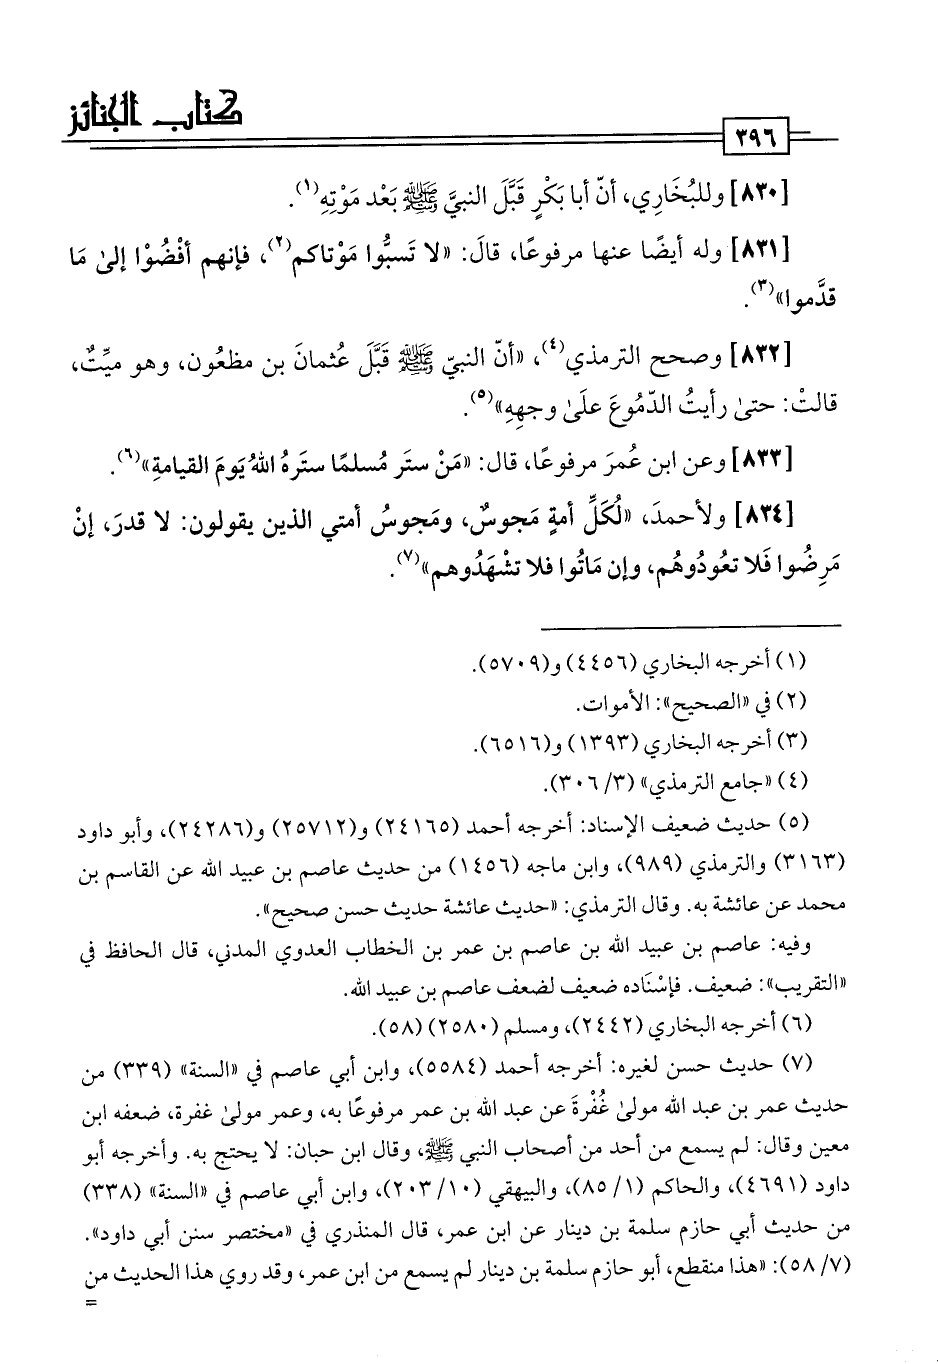 كتاب الجنائز
٣٩٦
[٨٣٠] وللبُخَارِي، أنّ أبا بَكْرٍ قَبَّلَ النبيَّ ﷺ بَعْد مَوْتِهِ(١).
[٨٣١] وله أيضًا عنها مرفوعًا، قالَ: «لا تَسبُّوا مَوْتاكم(٢)، فإنهم أفْضُوْا إلىٰ مَا
قدَّموا»(٣).
[٨٣٢] وصحح الترمذي(٤)، «أنّ النبيّ ﷺ قَبَّلَ عُثمانَ بن مظعُون، وهو ميِّتٌ،
قالتْ: حتىٰ رأيتُ الدّمُوعَ علَىٰ وجههِ»(٥).
[٨٣٣] وعن ابن عُمرَ مرفوعًا، قال: «مَنْ ستَر مُسلمًا ستَرهُ اللهُ يَومَ القيامةِ»(٦).
[٨٣٤] ولأحمدَ، «لُكَلِّ أمةٍ مَجوسٌ، ومَجوسُ أمتي الذين يقولون: لا قدرَ، إنْ
مَرِضُوا فَلا تعُودُوهُم، وإن مَاتُوا فلا تشْهَدُوهم»(٧).
(١) أخرجه البخاري (٤٤٥٦) و(٥٧٠٩).
(٢) في «الصحيح»: الأموات.
(٣) أخرجه البخاري (١٣٩٣) و(٦٥١٦).
(٤) «جامع الترمذي» (٣/ ٣٠٦).
(٥) حديث ضعيف الإسناد: أخرجه أحمد (٢٤١٦٥) و(٢٥٧١٢) و(٢٤٢٨٦)، وأبو داود
(٣١٦٣) والترمذي (٩٨٩)، وابن ماجه (١٤٥٦) من حديث عاصم بن عبيد الله عن القاسم بن
محمد عن عائشة به. وقال الترمذي: «حديث عائشة حديث حسن صحيح».
وفيه: عاصم بن عبيد الله بن عاصم بن عمر بن الخطاب العدوي المدني، قال الحافظ في
«التقريب»: ضعيف. فإسْنَاده ضعيف لضعف عاصم بن عبيد الله.
(٦) أخرجه البخاري (٢٤٤٢)، ومسلم (٢٥٨٠) (٥٨).
(٧) حديث حسن لغيره: أخرجه أحمد (٥٥٨٤)، وابن أبي عاصم في «السنة» (٣٣٩) من
حديث عمر بن عبد الله مولىٰ غُفْرةَ عن عبد الله بن عمر مرفوعًا به، وعمر مولىٰ غفرة، ضعفه ابن
معين وقال: لم يسمع من أحد من أصحاب النبي ﷺ، وقال ابن حبان: لا يحتج به. وأخرجه أبو
داود (٤٦٩١)، والحاكم (١/ ٨٥)، والبيهقي (١٠/ ٢٠٣)، وابن أبي عاصم في «السنة» (٣٣٨)
من حديث أبي حازم سلمة بن دينار عن ابن عمر، قال المنذري في «مختصر سنن أبي داود».
(٧/ ٥٨): «هذا منقطع، أبو حازم سلمة بن دينار لم يسمع من ابن عمر، وقد روي هذا الحديث من
=